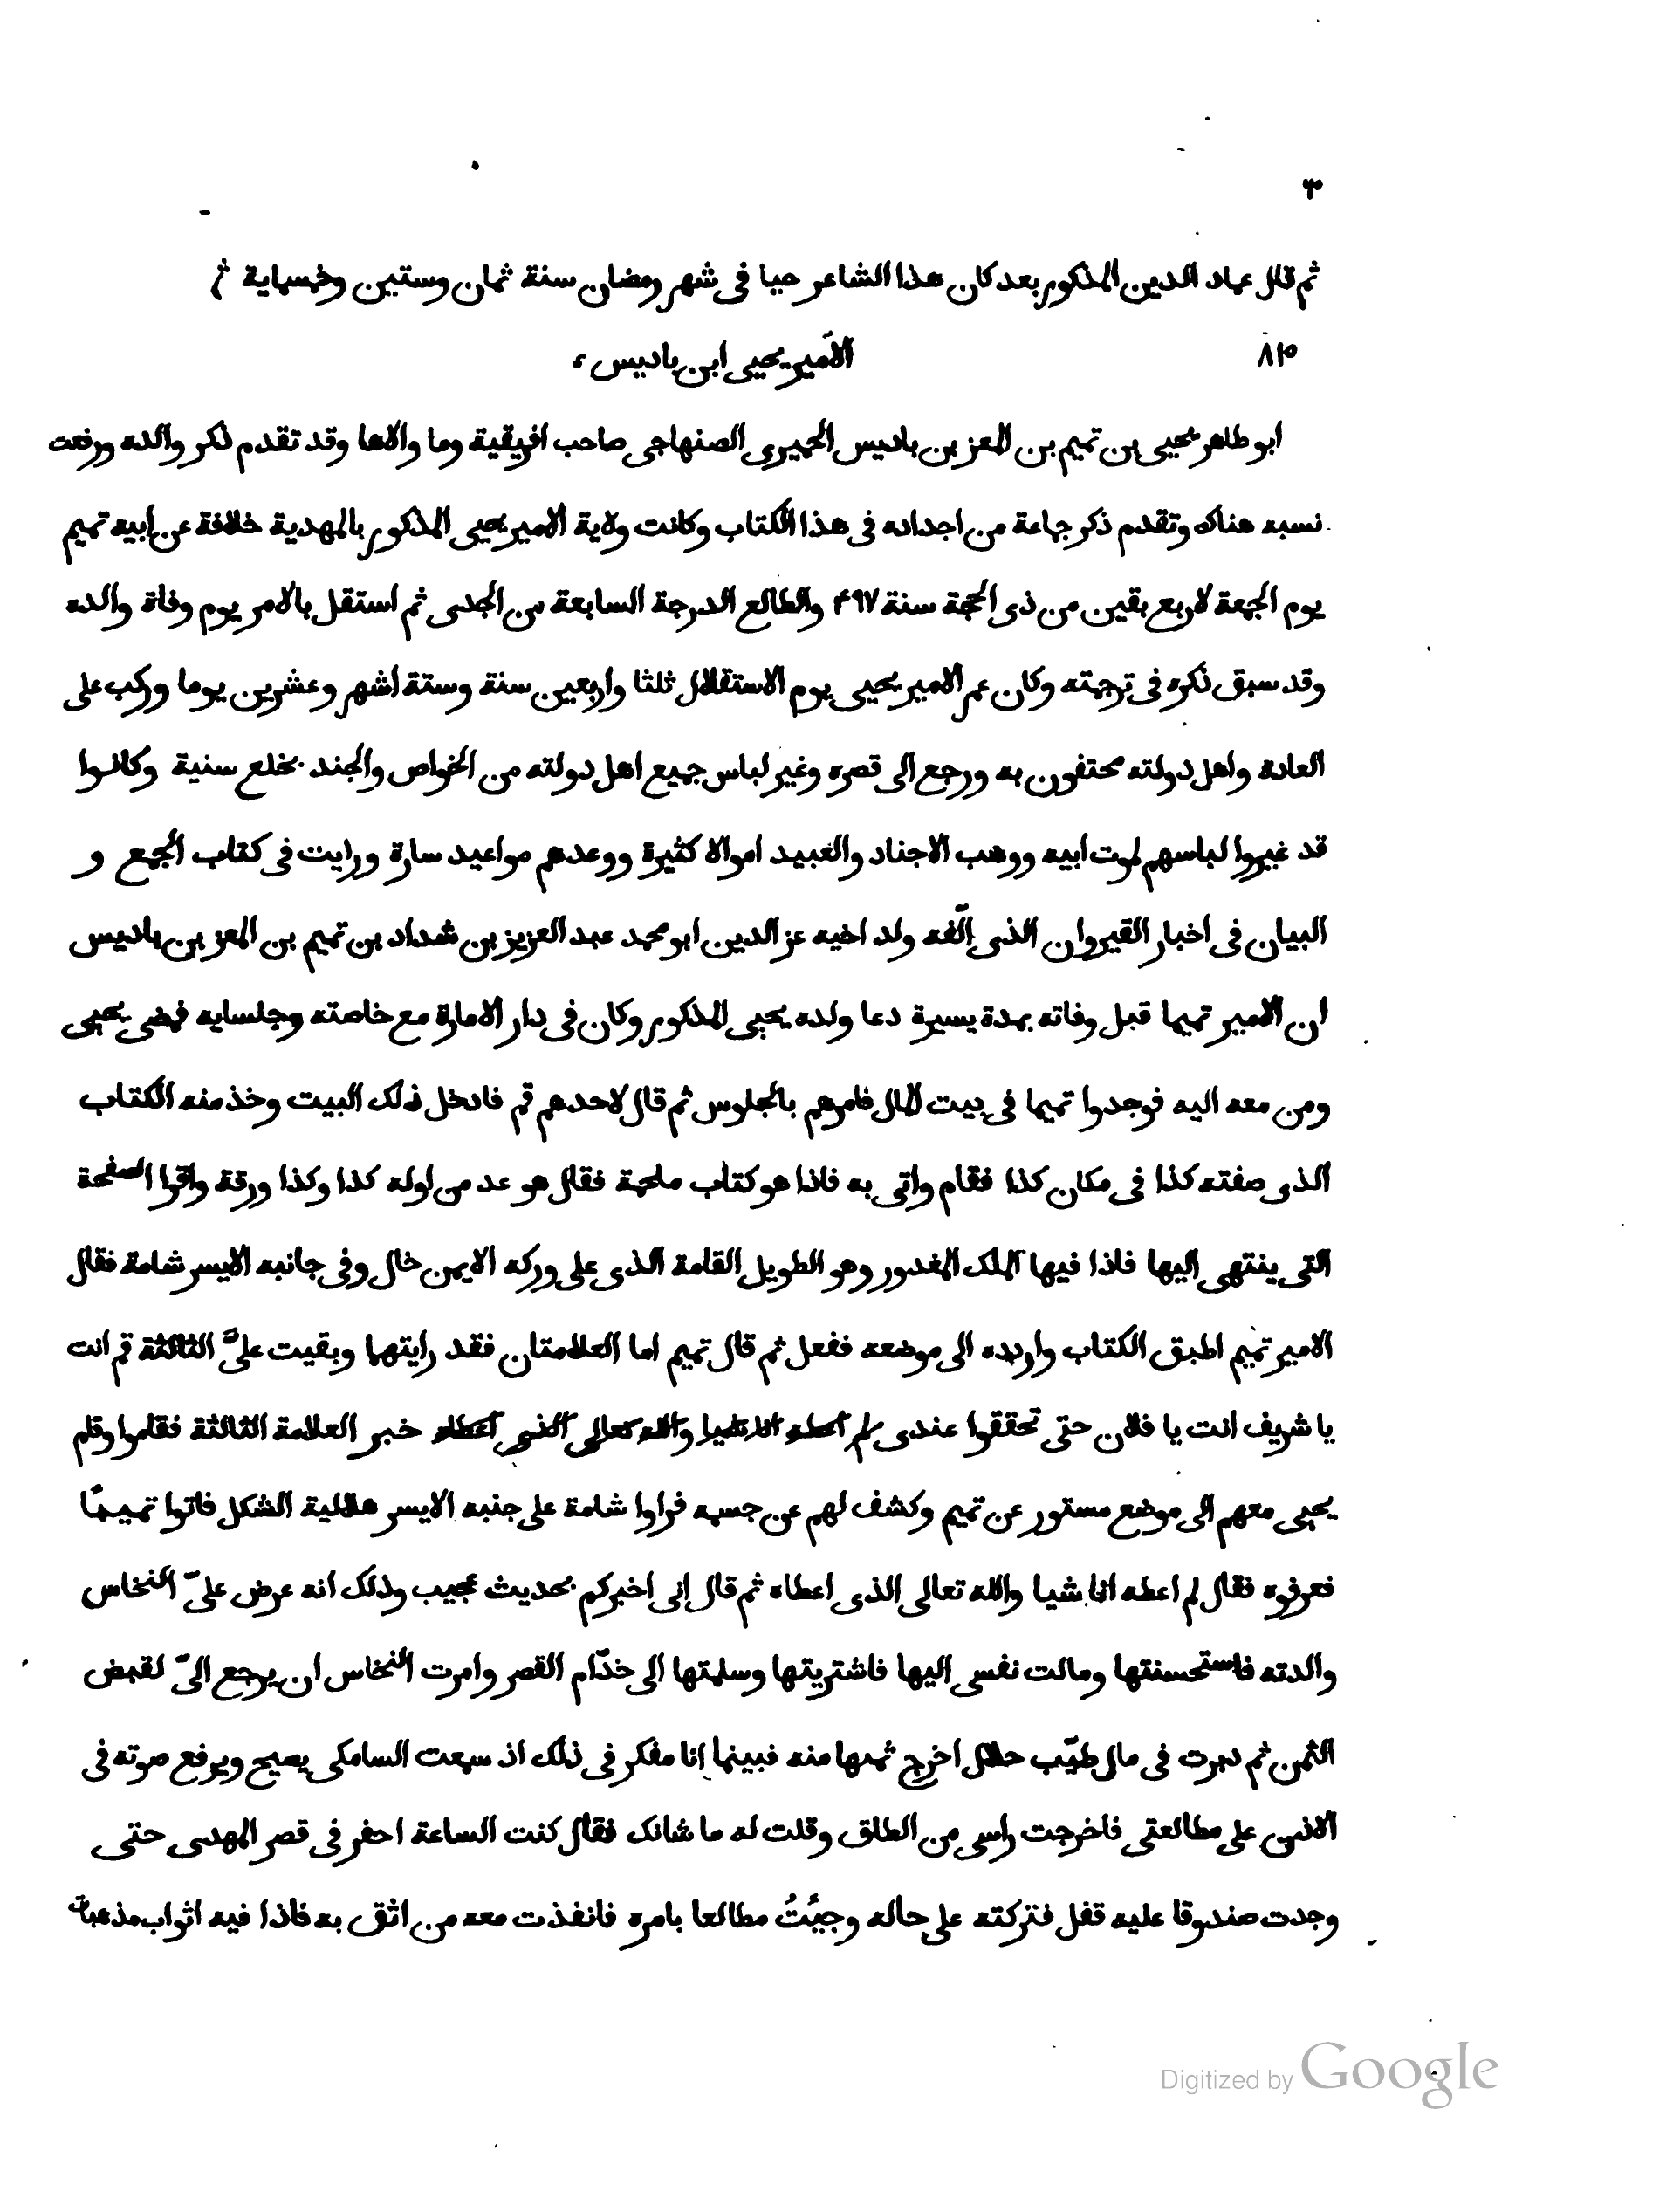 ٣
ثم قال عماد الدين المذكور بعد كان هذا الشاعر حيا فى شهر رمضان سنة ثمان وستين وخمسماية ثم
٨١٣ الأمير يحيى ابن باديس،
ابو طاهر يحيى بن تميم بن المعز بن باديس الحميرى الصنهاجى صاحب افريقية وما والاها وقد تقدم ذكر والده ورفعت
نسبه هناك وتقدم ذكر جماعة من اجداده فى هذا الكتاب وكانت ولاية الامير يحيى المذكور بالمهدية خلافة عن ابيه تميم
يوم الجمعة لاربع بقين من ذى الحجة سنة ۴۹۷ والطالع الدرجة السابعة من الجدى ثم استقل بالامر يوم وفاة والده
وقد سبق ذكره فى ترجمته وكان عمر الامير يحيى يوم الاستقلال ثلثا واربعين سنة وستة اشهر وعشرين يوما وركب على
العادة واهل دولته محتفون به ورجع الى قصره وغير لباس جميع اهل دولته من الخواص والجند بخلع سنية وكانوا
قد غيروا لباسهم لموت ابيه ووهب الاجناد والعبيد اموالا كثيرة ووعدهم مواعيد سارة ورايت فى كتاب الجمع و
البيان فى اخبار القيروان الذى الّفه ولد اخيه عز الدين ابو محمد عبد العزيز بن شداد بن تميم بن المعز بن باديس
ان الامير تميما قبل وفاته بمدة يسيرة دعا ولده يحيى المذكور وكان فى دار الامارة مع خاصته وجلسايه فمضى يحيى
ومن معه اليه فوجدوا تميما فى بيت المال فامرهم بالجلوس ثم قال لاحدهم قم فادخل ذلك البيت وخذ منه الكتاب
الذى صفته كذا فى مكان كذا فقام واتى به فاذا هو كتاب ملحمة فقال هو عد من اوله كذا وكذا ورقة واقرا الصفحة
التى ينتهى اليها فاذا فيها الملك المغدور وهو الطويل القامة الذى على وركه الايمن خال وفى جانبه الايسر شامة فقال
الامير تميم اطبق الكتاب واردده الى موضعه ففعل ثم قال تميم اما العلامتان فقد رايتهما وبقيت علىّ الثالثة قم انت
يا شريف انت يا فلان حتى تحققوا عندى لم اعطه انا شيا والله تعالى الذى اعطاه خبر العلامة الثالثة فقاموا وقام
يحيى معهم الى موضع مستور عن تميم وكشف لهم عن جسمه فراوا شامة على جنبه الايسر هلالية الشكل فاتوا تميمًا
فعرفوه فقال لم اعطه انا شيا والله تعالى الذى اعطاه ثم قال انى اخبركم بحديث عجيب وذلك انه عرض علىّ النخاس
والدته فاستحسنتها ومالت نفسى اليها فاشتريتها وسلمتها الى خدّام القصر وامرت النخاس ان يرجع الىّ لقبض
الثمن ثم دبرت فى مال طيّب حلال اخرج ثمنها منه فبينما انا مفكر فى ذلك اذ سمعت السامكى يصيح ويرفع صوته فى
الاذن على مطالعتى فاخرجت راسى من الطاق وقلت له ما شانك فقال كنت الساعة احفر فى قصر المهدى حتى
وجدت صندوقا عليه قفل فتركته على حاله وجيُتُ مطالعا بامره فانفذت معه من اثق به فاذا فيه اثواب مذهبات
Digitized by Google